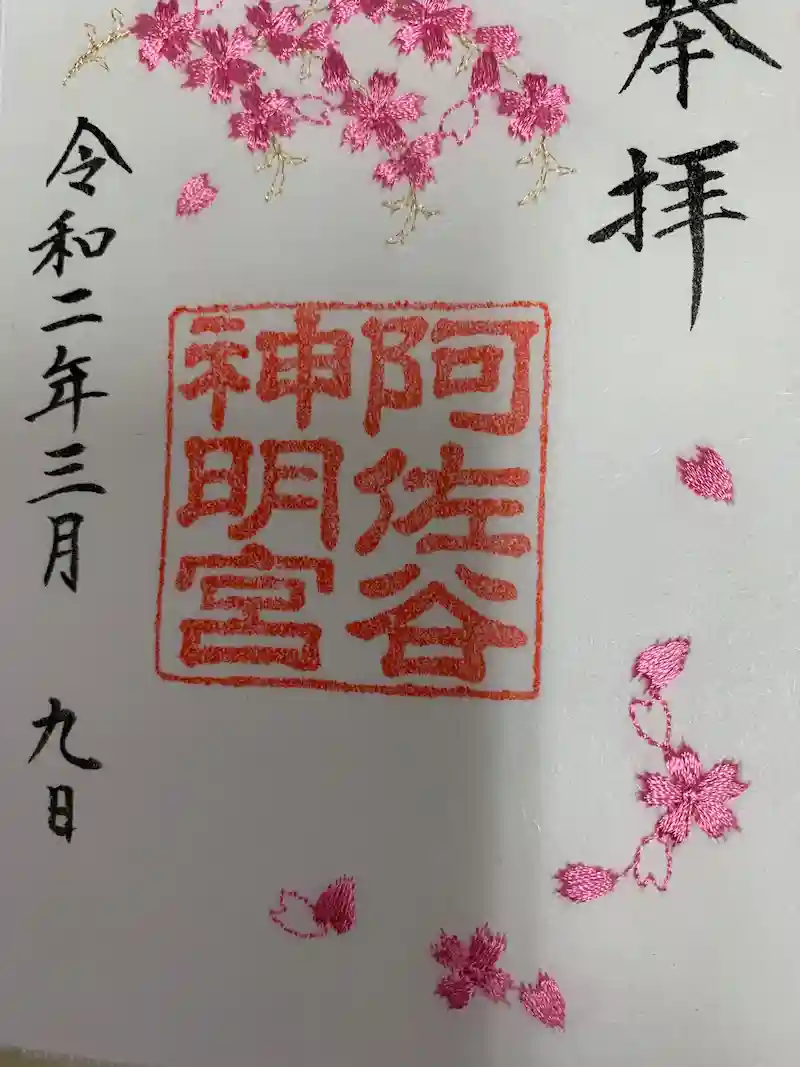 奉拝
阿佐谷
神明宮
令和二年三月 九日